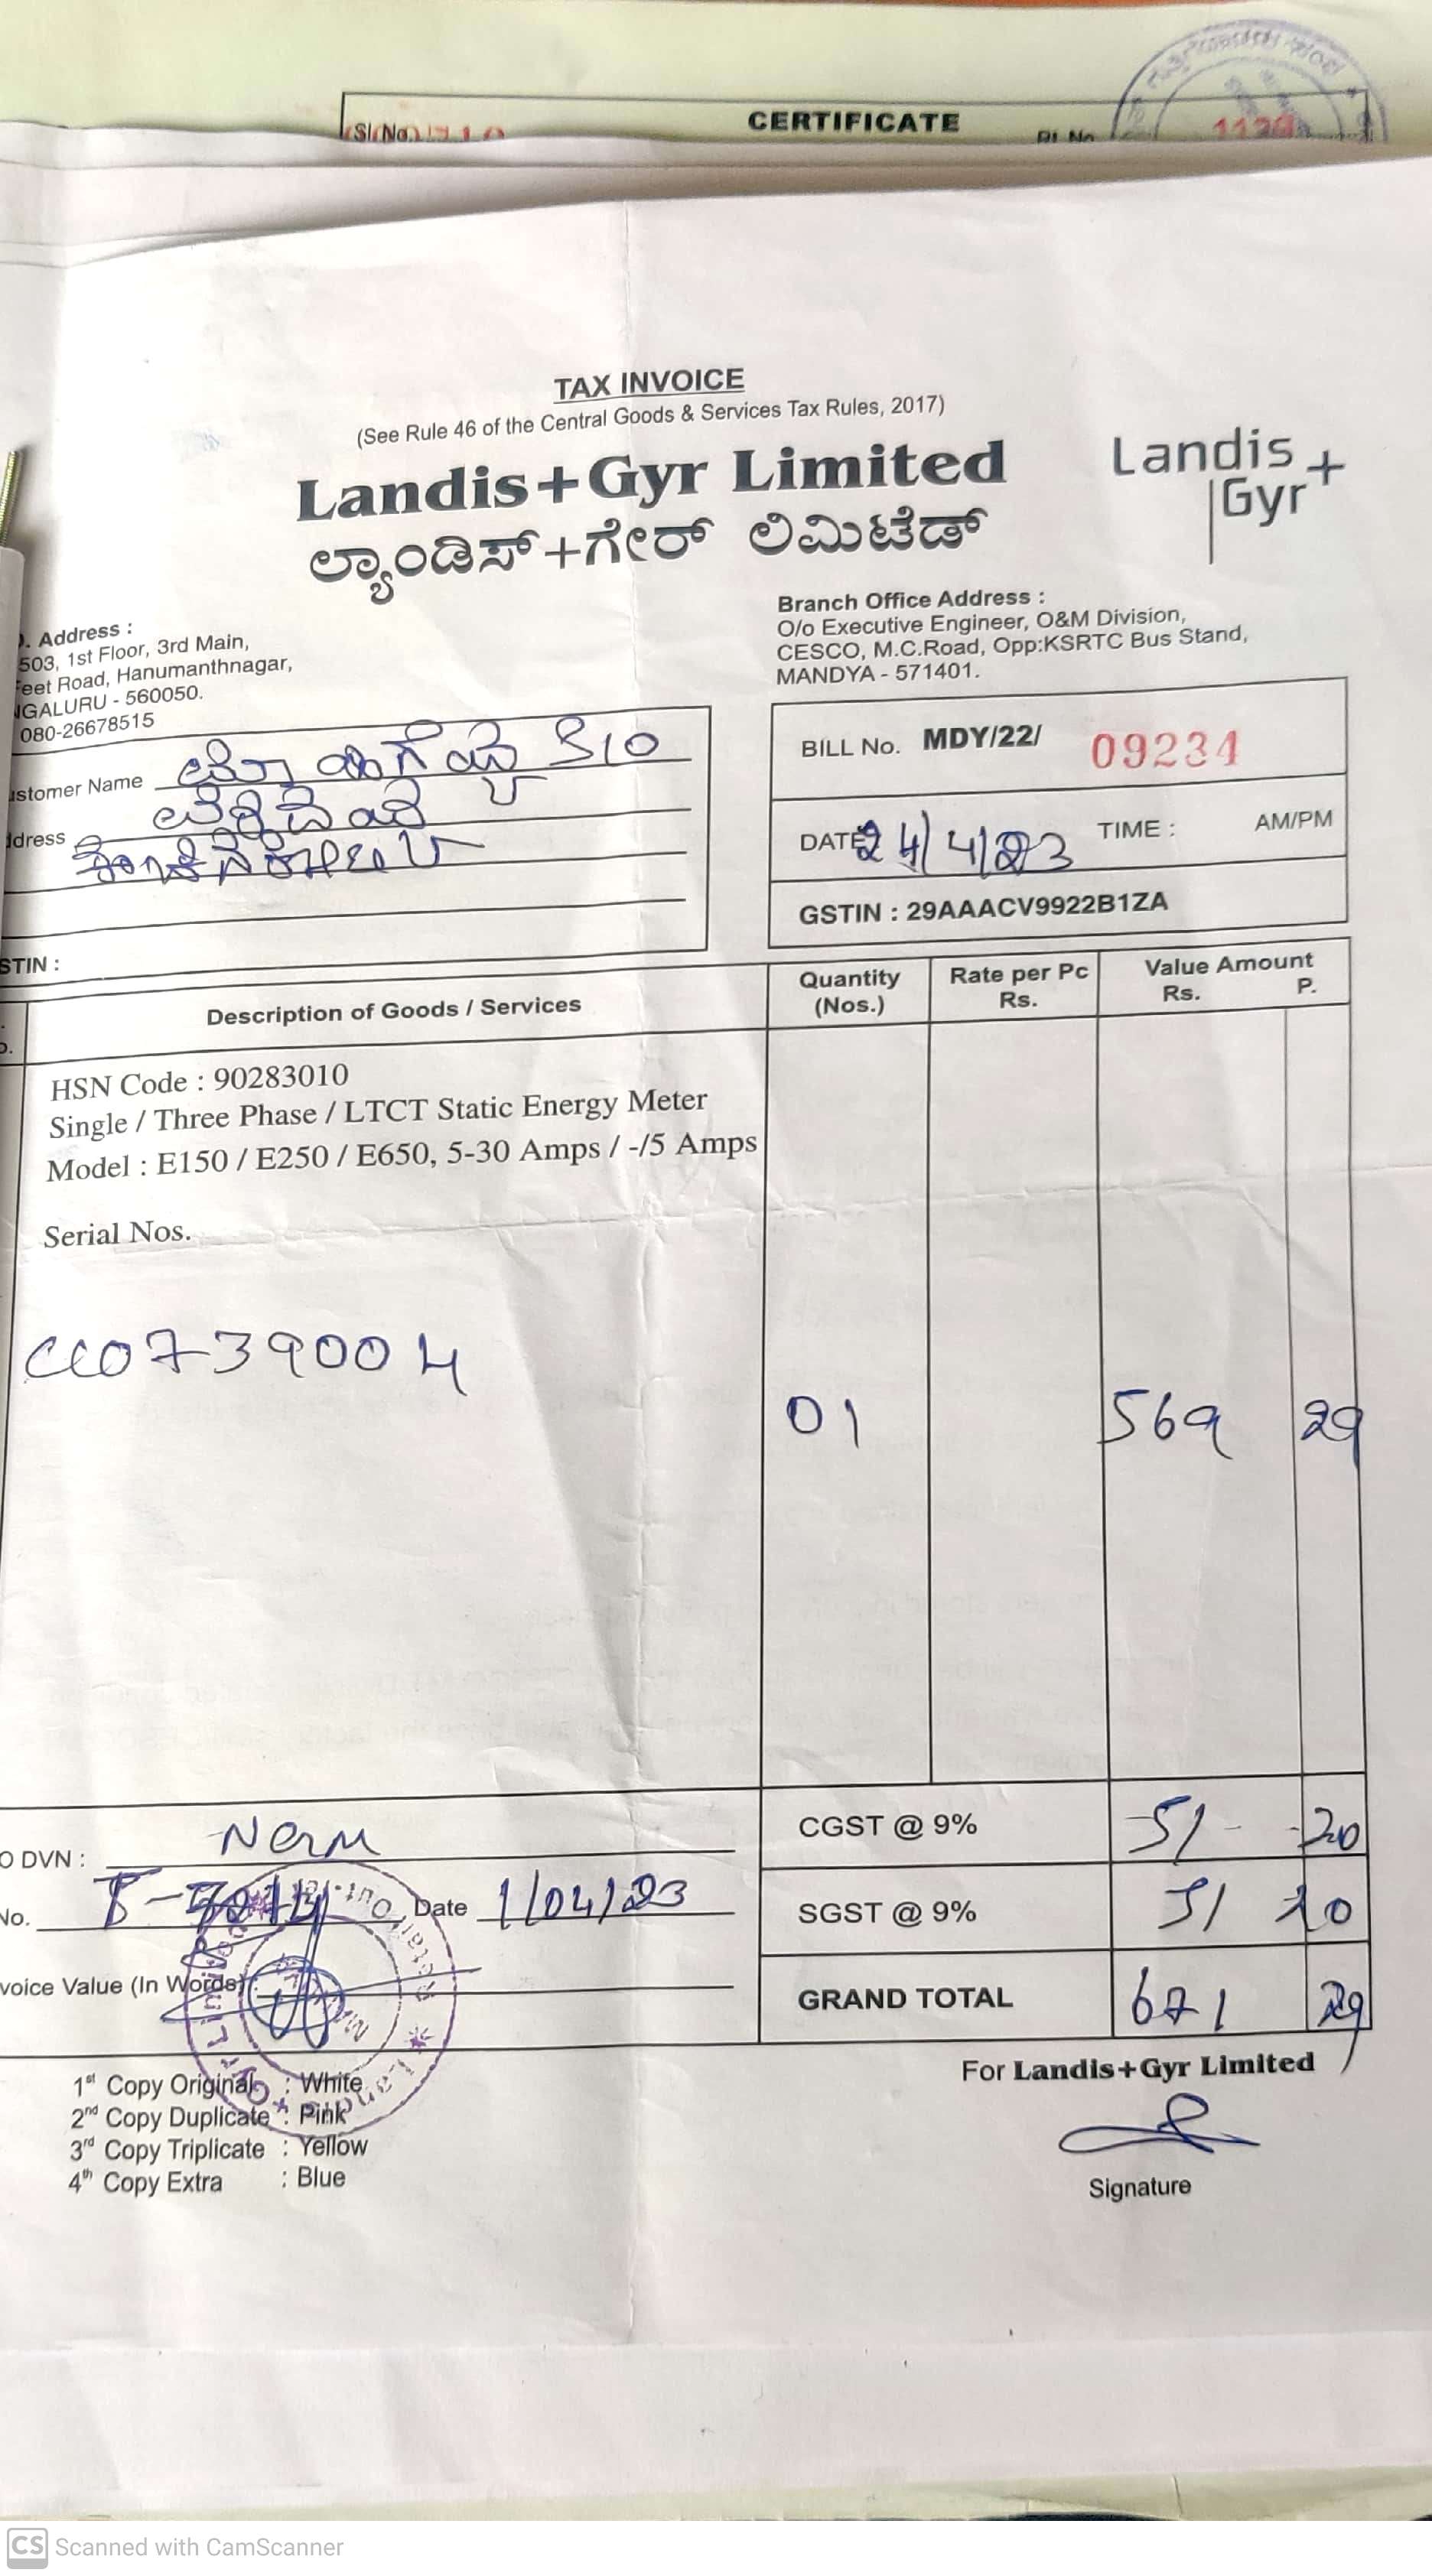 CERTIFICATE
Sl.No.
TAX INVOICE
(See Rule 46 of the Central Goods & Services Tax Rules, 2017)
Landis+Gyr Limited
ಲ್ಯಾಂಡಿಸ್+ಗೇರ್ ಲಿಮಿಟೆಡ್
Landis+
Gyr
. Address :
503, 1st Floor, 3rd Main,
eet Road, Hanumanthnagar,
NGALURU - 560050.
080-26678515
Branch Office Address :
O/o Executive Engineer, O&M Division,
CESCO, M.C.Road, Opp:KSRTC Bus Stand,
MANDYA - 571401.
ustomer Name S/O
ddress
BILL No. MDY/22/ 09234
DATE 24/4/23 TIME : AM/PM
GSTIN : 29AAACV9922B1ZA
STIN :
Description of Goods / Services
Quantity (Nos.)
Rate per Pc Rs.
Value Amount
Rs. P.
HSN Code : 90283010
Single / Three Phase / LTCT Static Energy Meter
Model : E150 / E250 / E650, 5-30 Amps / -/5 Amps
Serial Nos.
CC0739004
01 569 29
O DVN :
CGST @ 9% 51 20
No. Date 1/04/23
SGST @ 9% 51 20
voice Value (In Words)
GRAND TOTAL 671 29
For Landis+Gyr Limited
Signature
1st Copy Original : White
2nd Copy Duplicate : Pink
3rd Copy Triplicate : Yellow
4th Copy Extra : Blue
CS Scanned with CamScanner